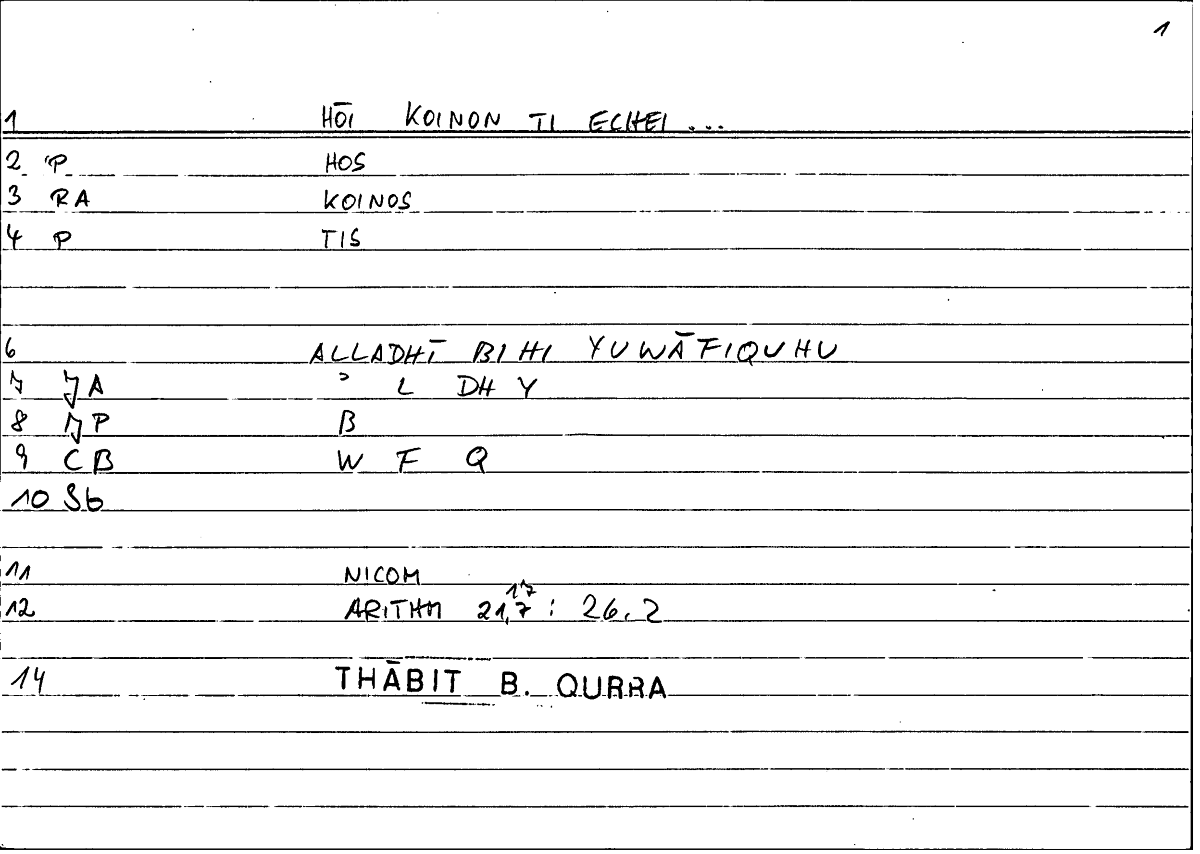 1
1 HŌI KOINON TI ECHEI ...
2 P HOS
3 RA KOINOS
4 P TIS
6 ALLADHĪ BIHI YUWĀFIQUHU
7 JA ʾ L DH Y
8 P B
9 CB W F Q
10 Sb
11 NICOM
12 ARITHM 21,7 17 : 26.2
14 THĀBIT B. QURRA